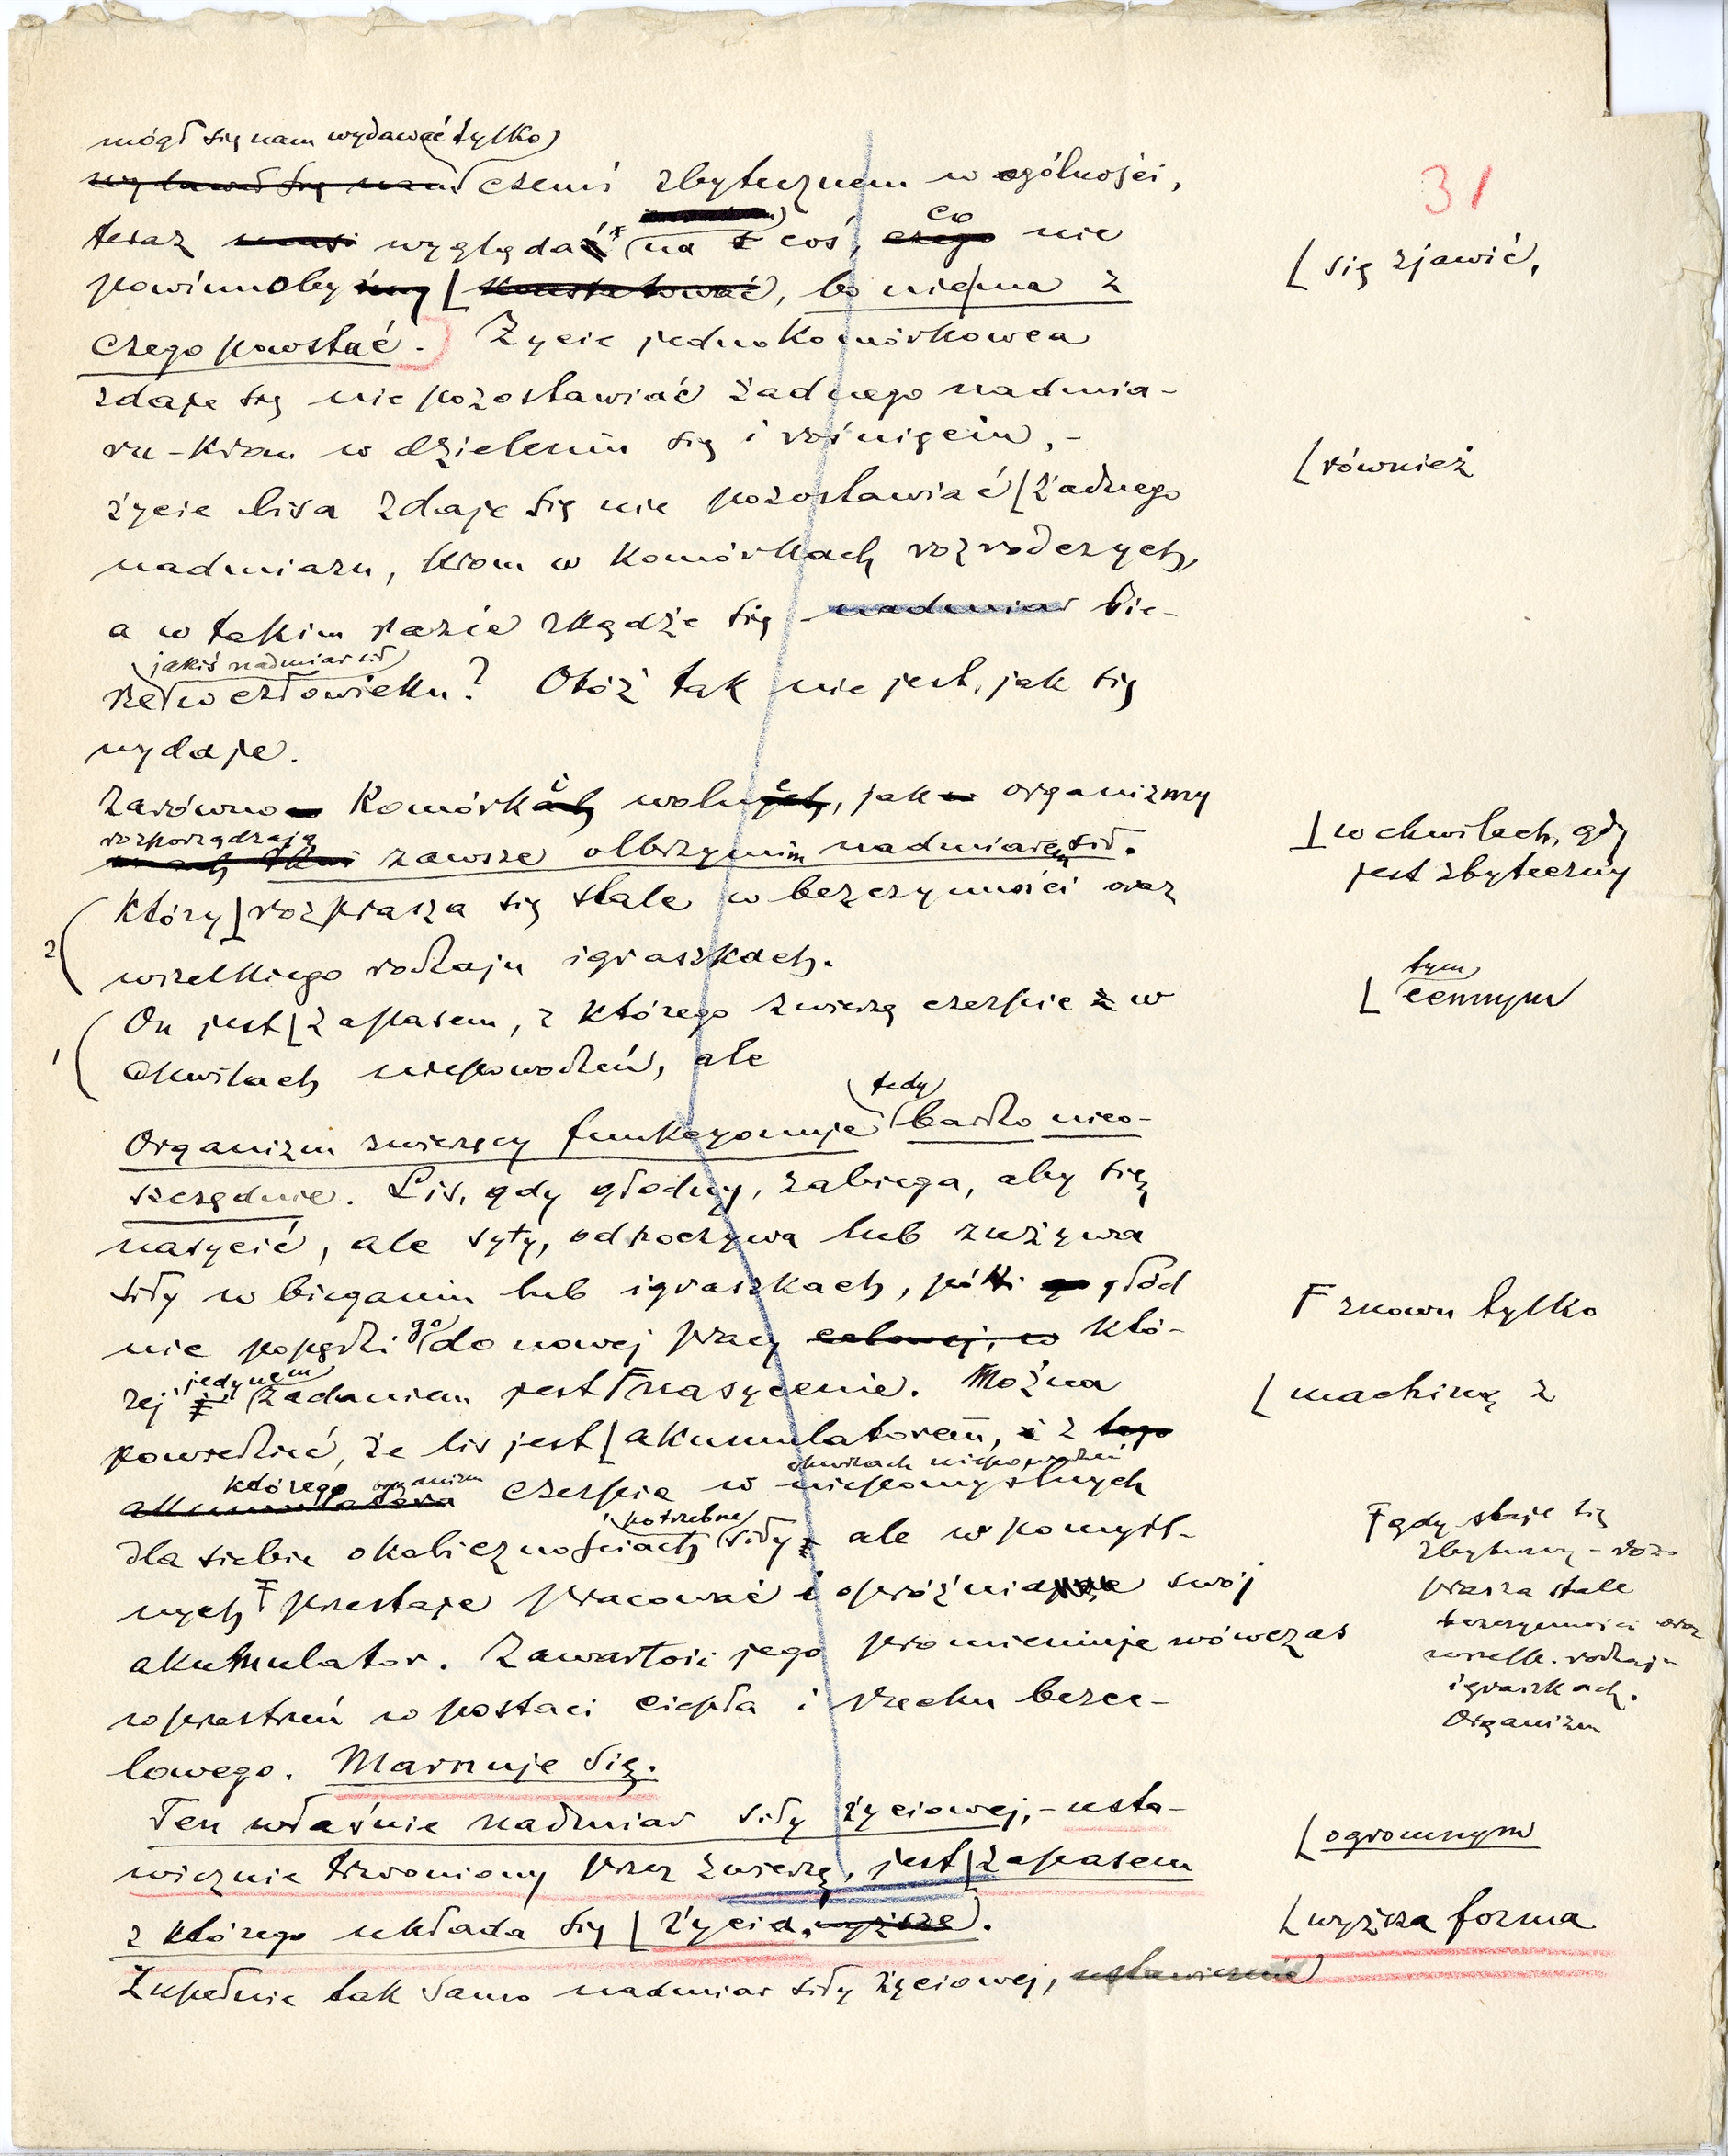 mógł się nam wydawać tylko
wydawał się nam czemś zbytecznem w ogólności,
31
teraz musi wyglądać na coś, czego co nie
się zjawić,
powinnoby konstatować, bo niema z
czego powstać. Życie jednokomórkowca
zdaje się nie pozostawiać żadnego nadmia-
ru - krom w dzieleniu się i rośnięciu, -
również
życie lisa zdaje się nie pozostawiać żadnego
nadmiaru, krom w komórkach rozrodczych,
a w takim razie skądże się nadmiar bie-
jakiś nadmiar sił
rze w człowieku? Otóż tak nie jest, jak się
wydaje.
Zarówno komórki wolne, jak organizmy
w chwilach, gdy
jest zbyteczny
rozporządzają
zawsze olbrzymim nadmiarem sił.
który rozprasza się stale w bezczynności oraz
2
wszelkiego rodzaju igraszkach.
tym
cennym
On jest zapasem, z którego zwierzę czerpie w
1
chwilach niepowodzeń, ale
tedy
Organizm zwierzęcy funkcyonuje bardzo nieo-
szczędnie. Lis, gdy głodny, zabiega, aby się
nasycić, ale syty, odpoczywa lub zużywa
siły w bieganiu lub igraszkach, póki głód
znowu tylko
nie popędzi go do nowej pracy celowej, w któ-
jedynem
rej zadaniem jest nasycenie. Można
machiną z
powiedzieć, że lis jest akumulatorem, i z tego
chwilach niepowodzeń
którego organizm
akumulatora czerpie w niepomyślnych
potrzebne
dla siebie okolicznościach siły, ale w pomyśl-
gdy staje się
zbyteczny - roz-
prasza stale
bezczynności oraz
wszelk. rodzaju
igraszkach.
Organizm
nych przestaje pracować i opróżnia swój
akumulator. Zawartość jego promieniuje wówczas
w przestrzeń w postaci ciepła i ruchu bezce-
lowego. Marnuje się.
Ten właśnie nadmiar siły życiowej, - usta-
ogromnym
wicznie trwoniony przez zwierzę, jest zapasem
wyższa forma
z którego układa się życia, wyższe.
Zupełnie tak samo nadmiar siły życiowej, ustawicznie